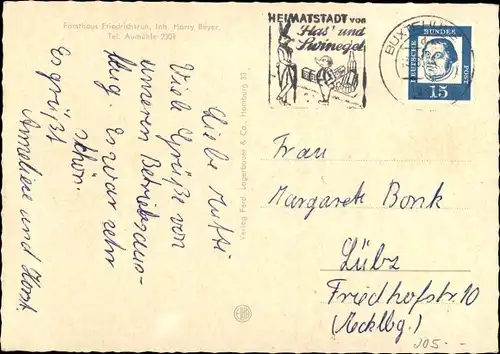 Forsthaus Friedrichsruh, Inh. Harry Beyer,
Tel. Aumühle 2208
Liebe Mutti
Viele Grüße von
unserem Betriebsaus-
flug. Es war sehr
schön.
Es grüßt
Anneliese und Horst
Verlag Ferd. Lagerbauer & Co., Hamburg 33
HEIMATSTADT von
Has' und
Swinegel
BUXTEHUDE
DEUTSCHE
BUNDES
POST
15
Frau
Margarete Bonk
Lübz
Friedhofstr. 10
(Mecklbg.)